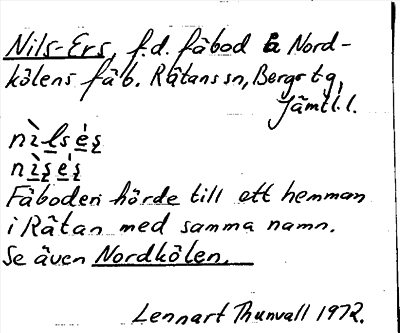 Nils-Ers, f.d. fäbod å Nord-
kölens fäb. Rätans sn, Bergs tg,
Jämtl. l.
nìlsés̱
nìs̱és̱
Fäboden hörde till ett hemman
i Rätan med samma namn.
Se även Nordkölen.
Lennart Thunvall 1972.